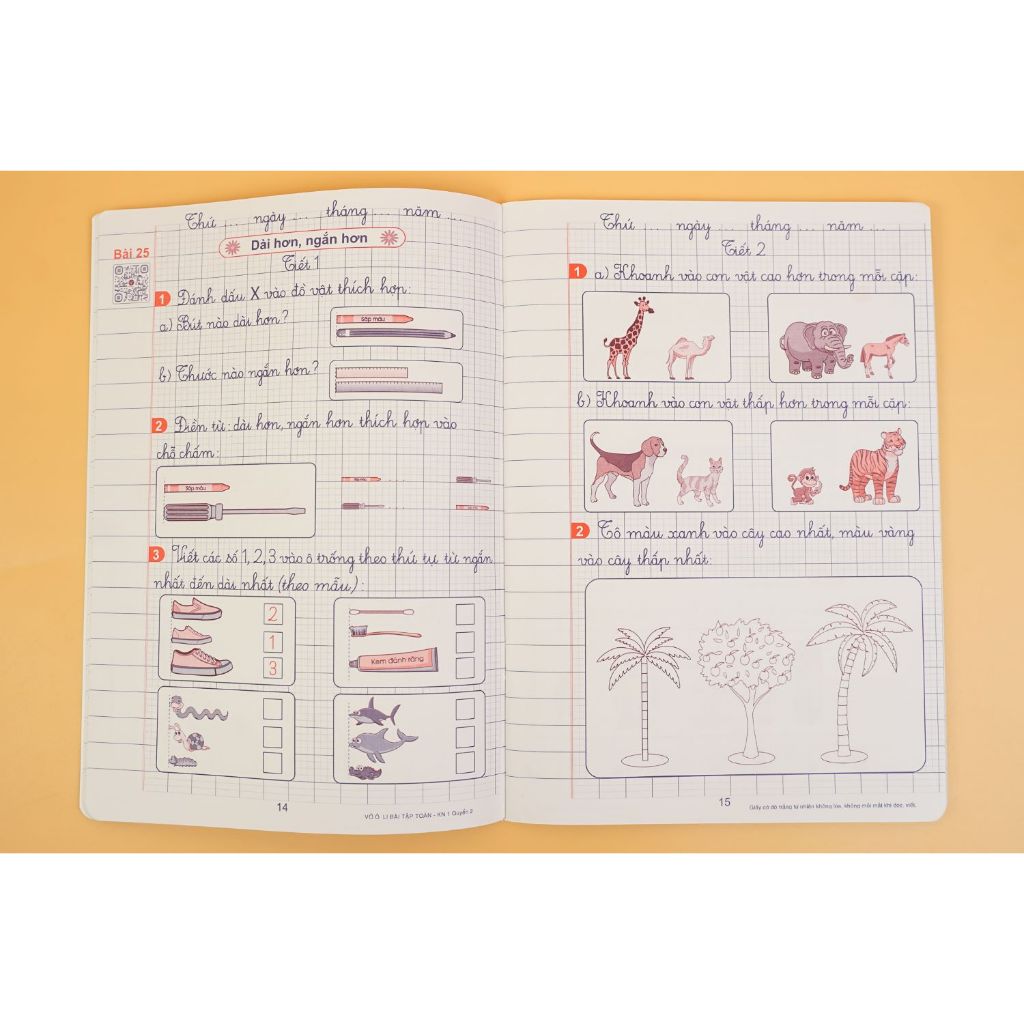 Thứ ... ngày ... tháng ... năm ...
Bài 25
Dài hơn, ngắn hơn
Tiết 1
1 Đánh dấu X vào đồ vật thích hợp:
a) Bút nào dài hơn?
Sáp màu
b) Thước nào ngắn hơn?
2 Điền từ: dài hơn, ngắn hơn thích hợp vào
chỗ chấm:
Sáp màu
3 Viết các số 1, 2, 3 vào ô trống theo thứ tự từ ngắn
nhất đến dài nhất (theo mẫu):
2
1
3
Kem đánh răng
14
VỞ Ô LI BÀI TẬP TOÁN - KN 1 Quyển 2
Thứ ... ngày ... tháng ... năm ...
Tiết 2
1 a) Khoanh vào con vật cao hơn trong mỗi cặp:
b) Khoanh vào con vật thấp hơn trong mỗi cặp:
2 Tô màu xanh vào cây cao nhất, màu vàng
vào cây thấp nhất:
15
Giấy có độ trắng tự nhiên không lóa, không mỏi mắt khi đọc, viết.